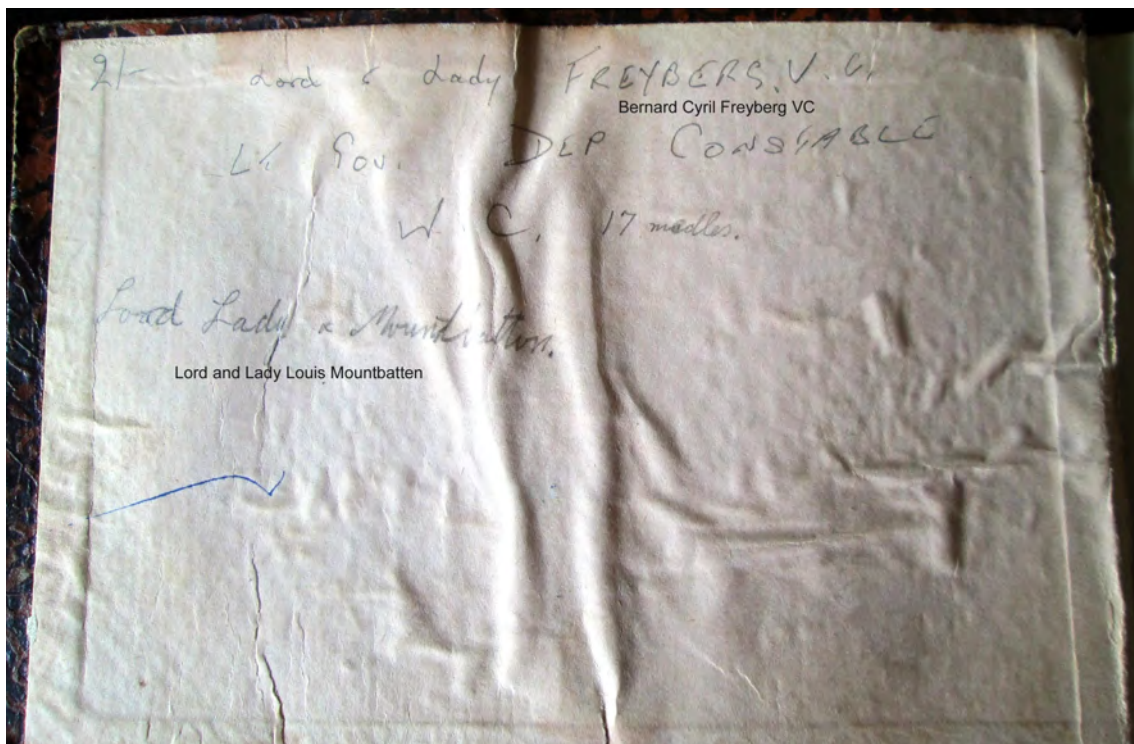 2/- Lord & Lady FREYBERG. V.C.
Bernard Cyril Freyberg VC
Lt Gov. DEP CONSTABLE
W. C. 17 medles.
Lord Lady & Mountbatton.
Lord and Lady Louis Mountbatten